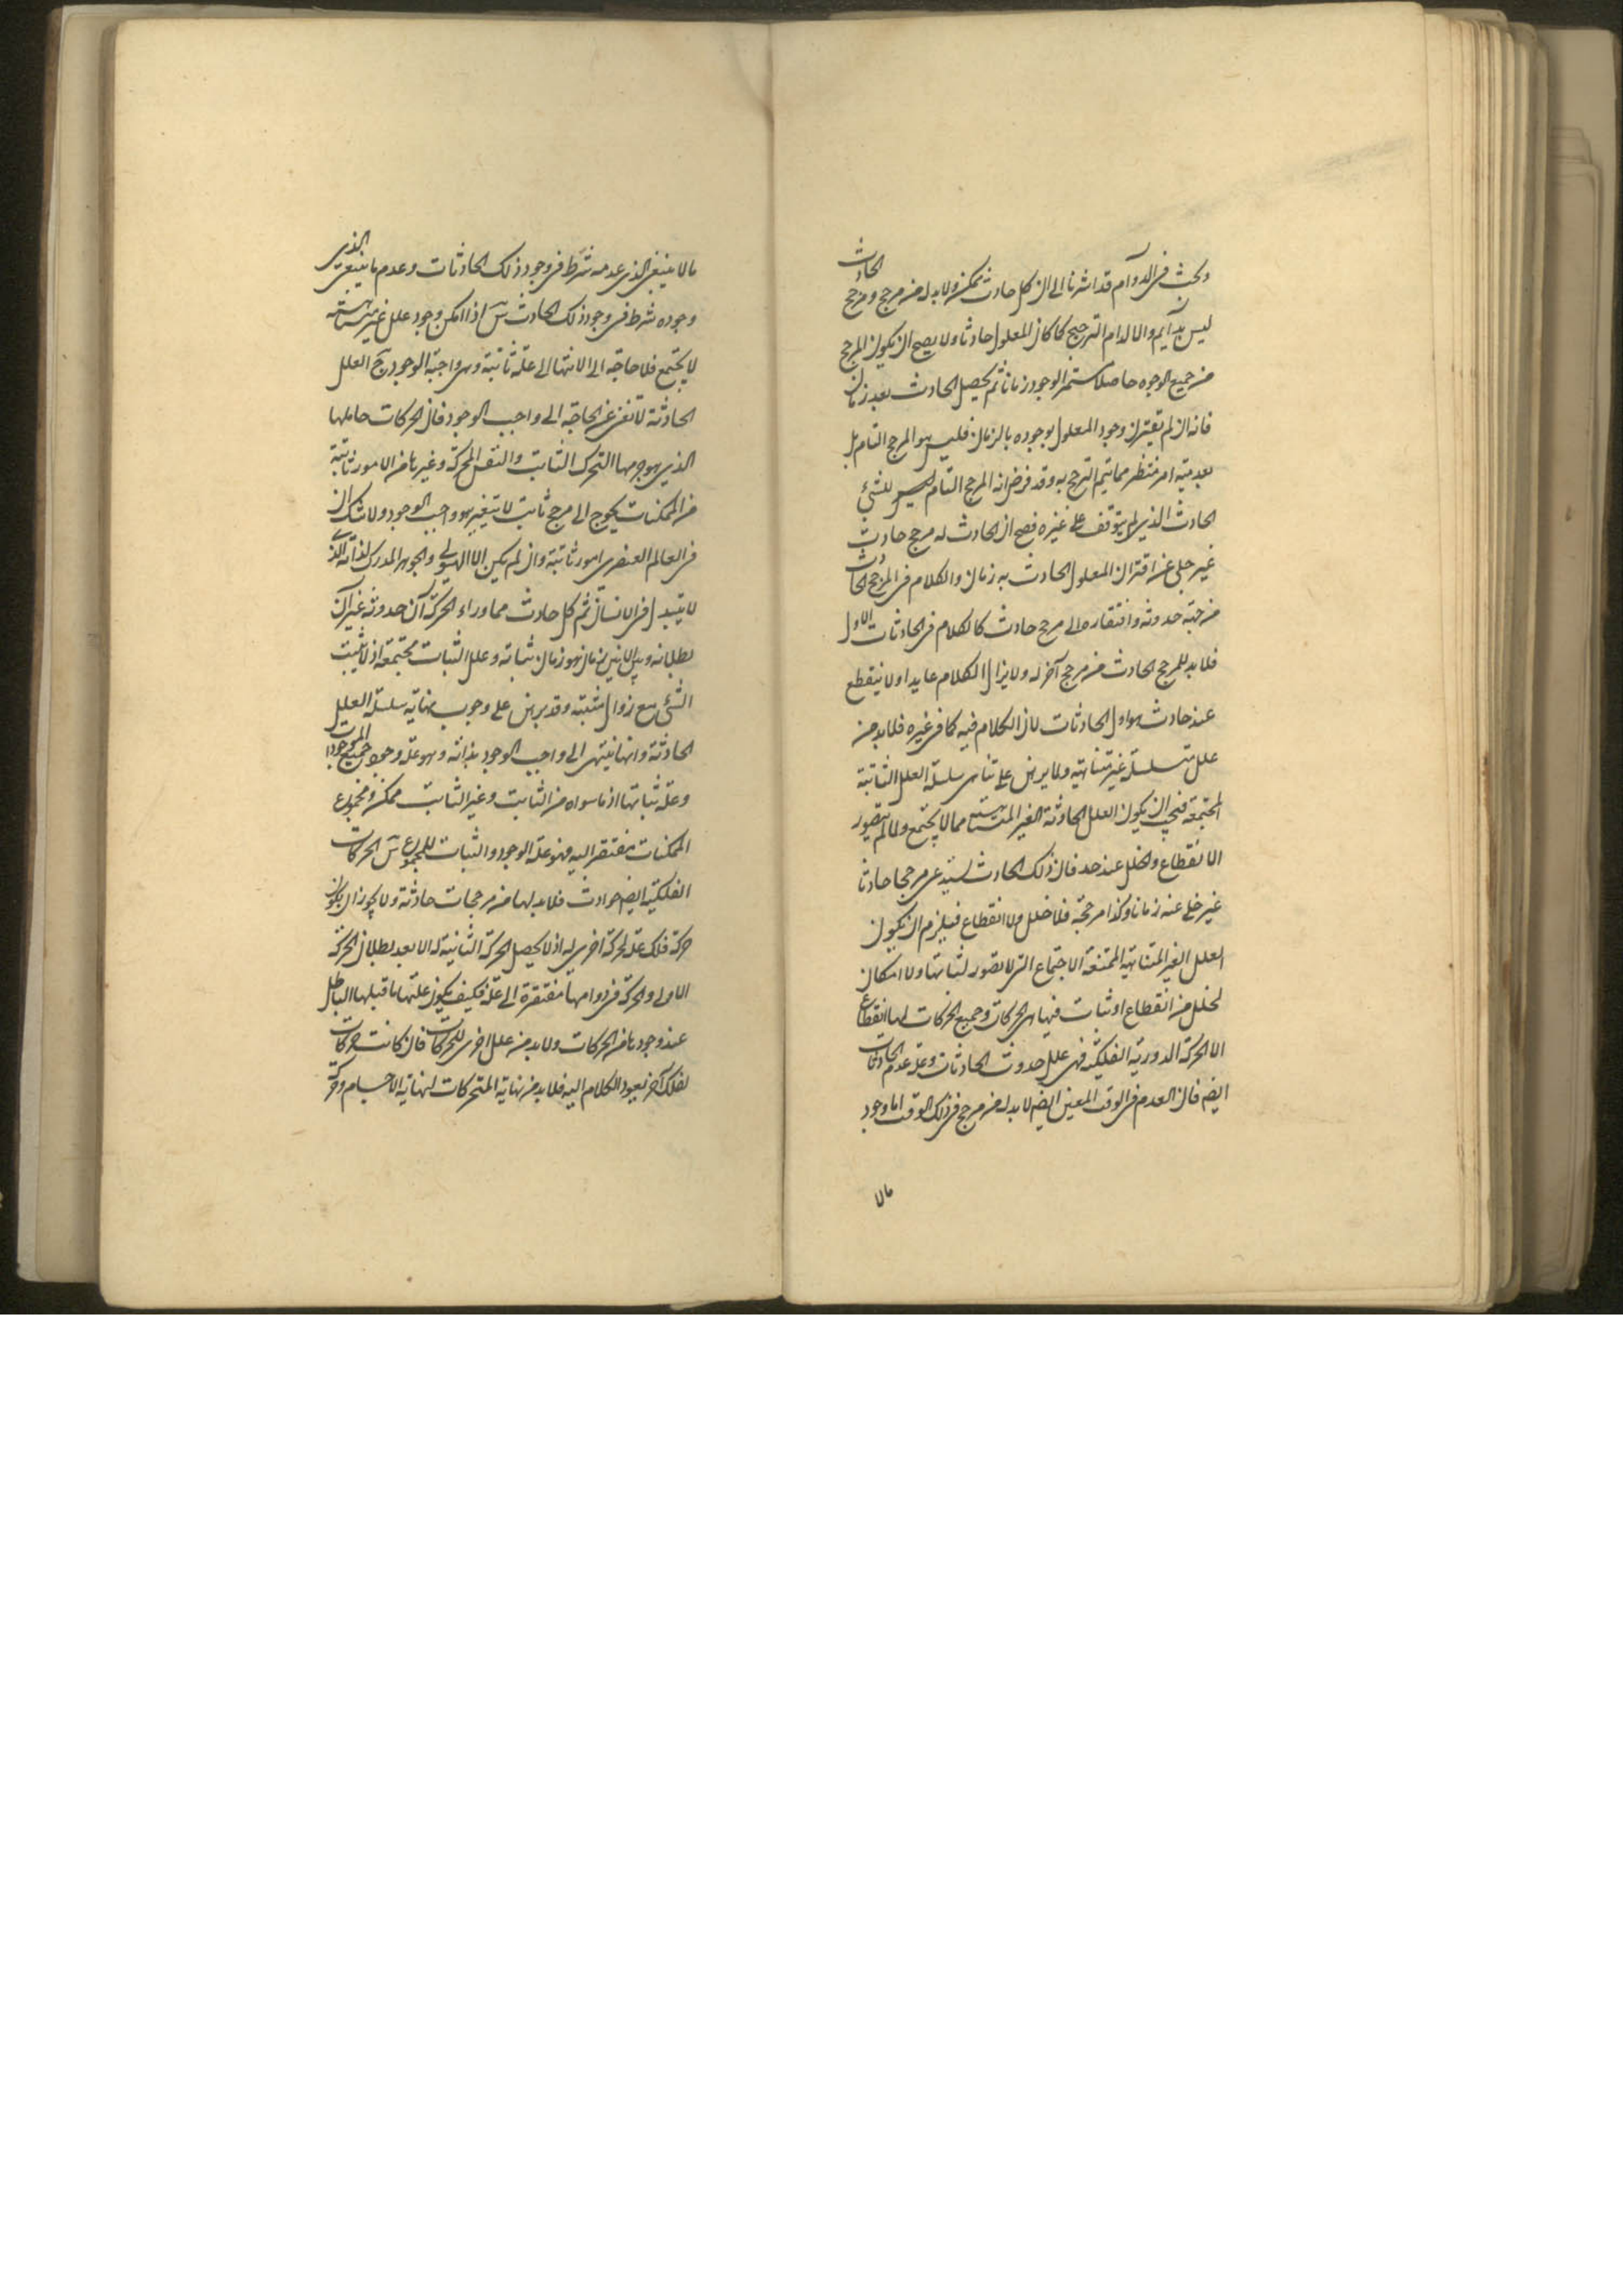 وبحث فی الدوام قد اشرنا الی ان کل حادث ممکن ولا بد له من مرجح ومرجح الحادث
لیس بدایم والا لدام الترجیح کما کان المعلول حادثا ولا یصح ان یکون المرجح
من جمیع الوجوه حاصلا مستمر الوجود زمانا ثم یحصل الحادث بعد زمان
فانه ان لم یقترن وجود المعلول بوجوده بالزمان فلیس هو المرجح التام بل
بعدیته امر منتظر مما یتم الترجح به وقد فرض انه المرجح التام للشئ
الحادث الذی لم یتوقف علی غیره فصح ان الحادث له مرجح حادث
غیر خلی عن اقتران المعلول الحادث به زمان والکلام فی المرجح الحادث
من جهة حدوثه وافتقاره الی مرجح حادث کالکلام فی الحادثات الاول
فلا بد للمرجح الحادث من مرجح آخر له ولا یزال الکلام عایدا ولا ینقطع
عند حادث هو اول الحادثات لان الکلام فیه کما فی غیره فلا بد من
علل متسلسلة غیر متناهیة ولما برهن علی تناهی سلسلة العلل الثابتة
المجتمعة فیجب ان یکون العلل الحادثة الغیر المتناهیة مما لا یجتمع ولما لم یتصور
الانقطاع والخلل عند حد فان ذلک الحادث یستدعی مرجحا حادثا
غیر خلی عنه زمانا وکذا مرجحه فلا خلل ولا انقطاع فیلزم ان یکون
العلل الغیر المتناهیة الممتنعة الاجتماع التی لا یتصور لثباتها ولا امکان
لخلل من انقطاع او ثبات فیها هی الحرکات وجمیع الحرکات لها انقطاع
الا الحرکة الدوریة الفلکیة فهی علل حدوث الحادثات وعلة عدم الحادثات
ایضم فان العدم فی الوقت المعین ایضم لا بد له من مرجح فی ذلک الوقت اما وجود
مالا
مالا ینبغی الذی عدمه شرط فی وجود ذلک الحادثات وعدم ما ینبغی الذی
وجوده شرط فی وجود ذلک الحادث س اذا امکن وجود علل غیر متناهیة
لا یجتمع فلا حاجة الی الانتها الی علة ثابتة وهی واجبة الوجود ج العلل
الحادثة لا تغنی عن الحاجة الی واجب الوجود فان الحرکات حاملها
الذی هو جرمها المتحرک الثابت والنفس المحرکة وغیرها من الامور ثابتة
من الممکنات یحوج الی مرجح ثابت لا یتغیر هو واجب الوجود ولا شک ان
فی العالم العنصری امور ثابتة وان لم یکن الا الهیولی والجوهر المدرک لذاته الذی
لا یتبدل فی الانسان ثم کل حادث مما وراء الحرکة آن حدوثه غیر آن
بطلانه وبین الانین زمان هو زمان ثباته وعلل الثبات مجتمعة اذ لا یثبت
الشئ مع زوال مثبته وقد برهن علی وجوب نهایة سلسلة العلل
الحادثة وانها ینتهی الی واجب الوجود بذاته وهو علة وجود جمیع الموجودات
وعلة ثباتها اذ ما سواه من الثابت وغیر الثابت ممکن ومجموع
الممکنات مفتقر الیه فهو علة الوجود والثبات للمجموع س الحرکات
الفلکیة ایضم حوادث فلا بد لها من مرجحات حادثة ولا یجوز ان یکون
حرکة فلک علة لحرکة اخری له اذ لا یحصل الحرکة الثانیة له الا بعد بطلان الحرکة
الاولی والحرکة فی دوامها مفتقرة الی علة فکیف یکون علتها ما قبلها الباطل
عند وجودها من الحرکات ولا بد من علل اخری للحرکات فان کانت حرکات
لفلک آخر یعود الکلام الیه فلا بد من نهایة المتحرکات لنهایة الاجسام وحرکة